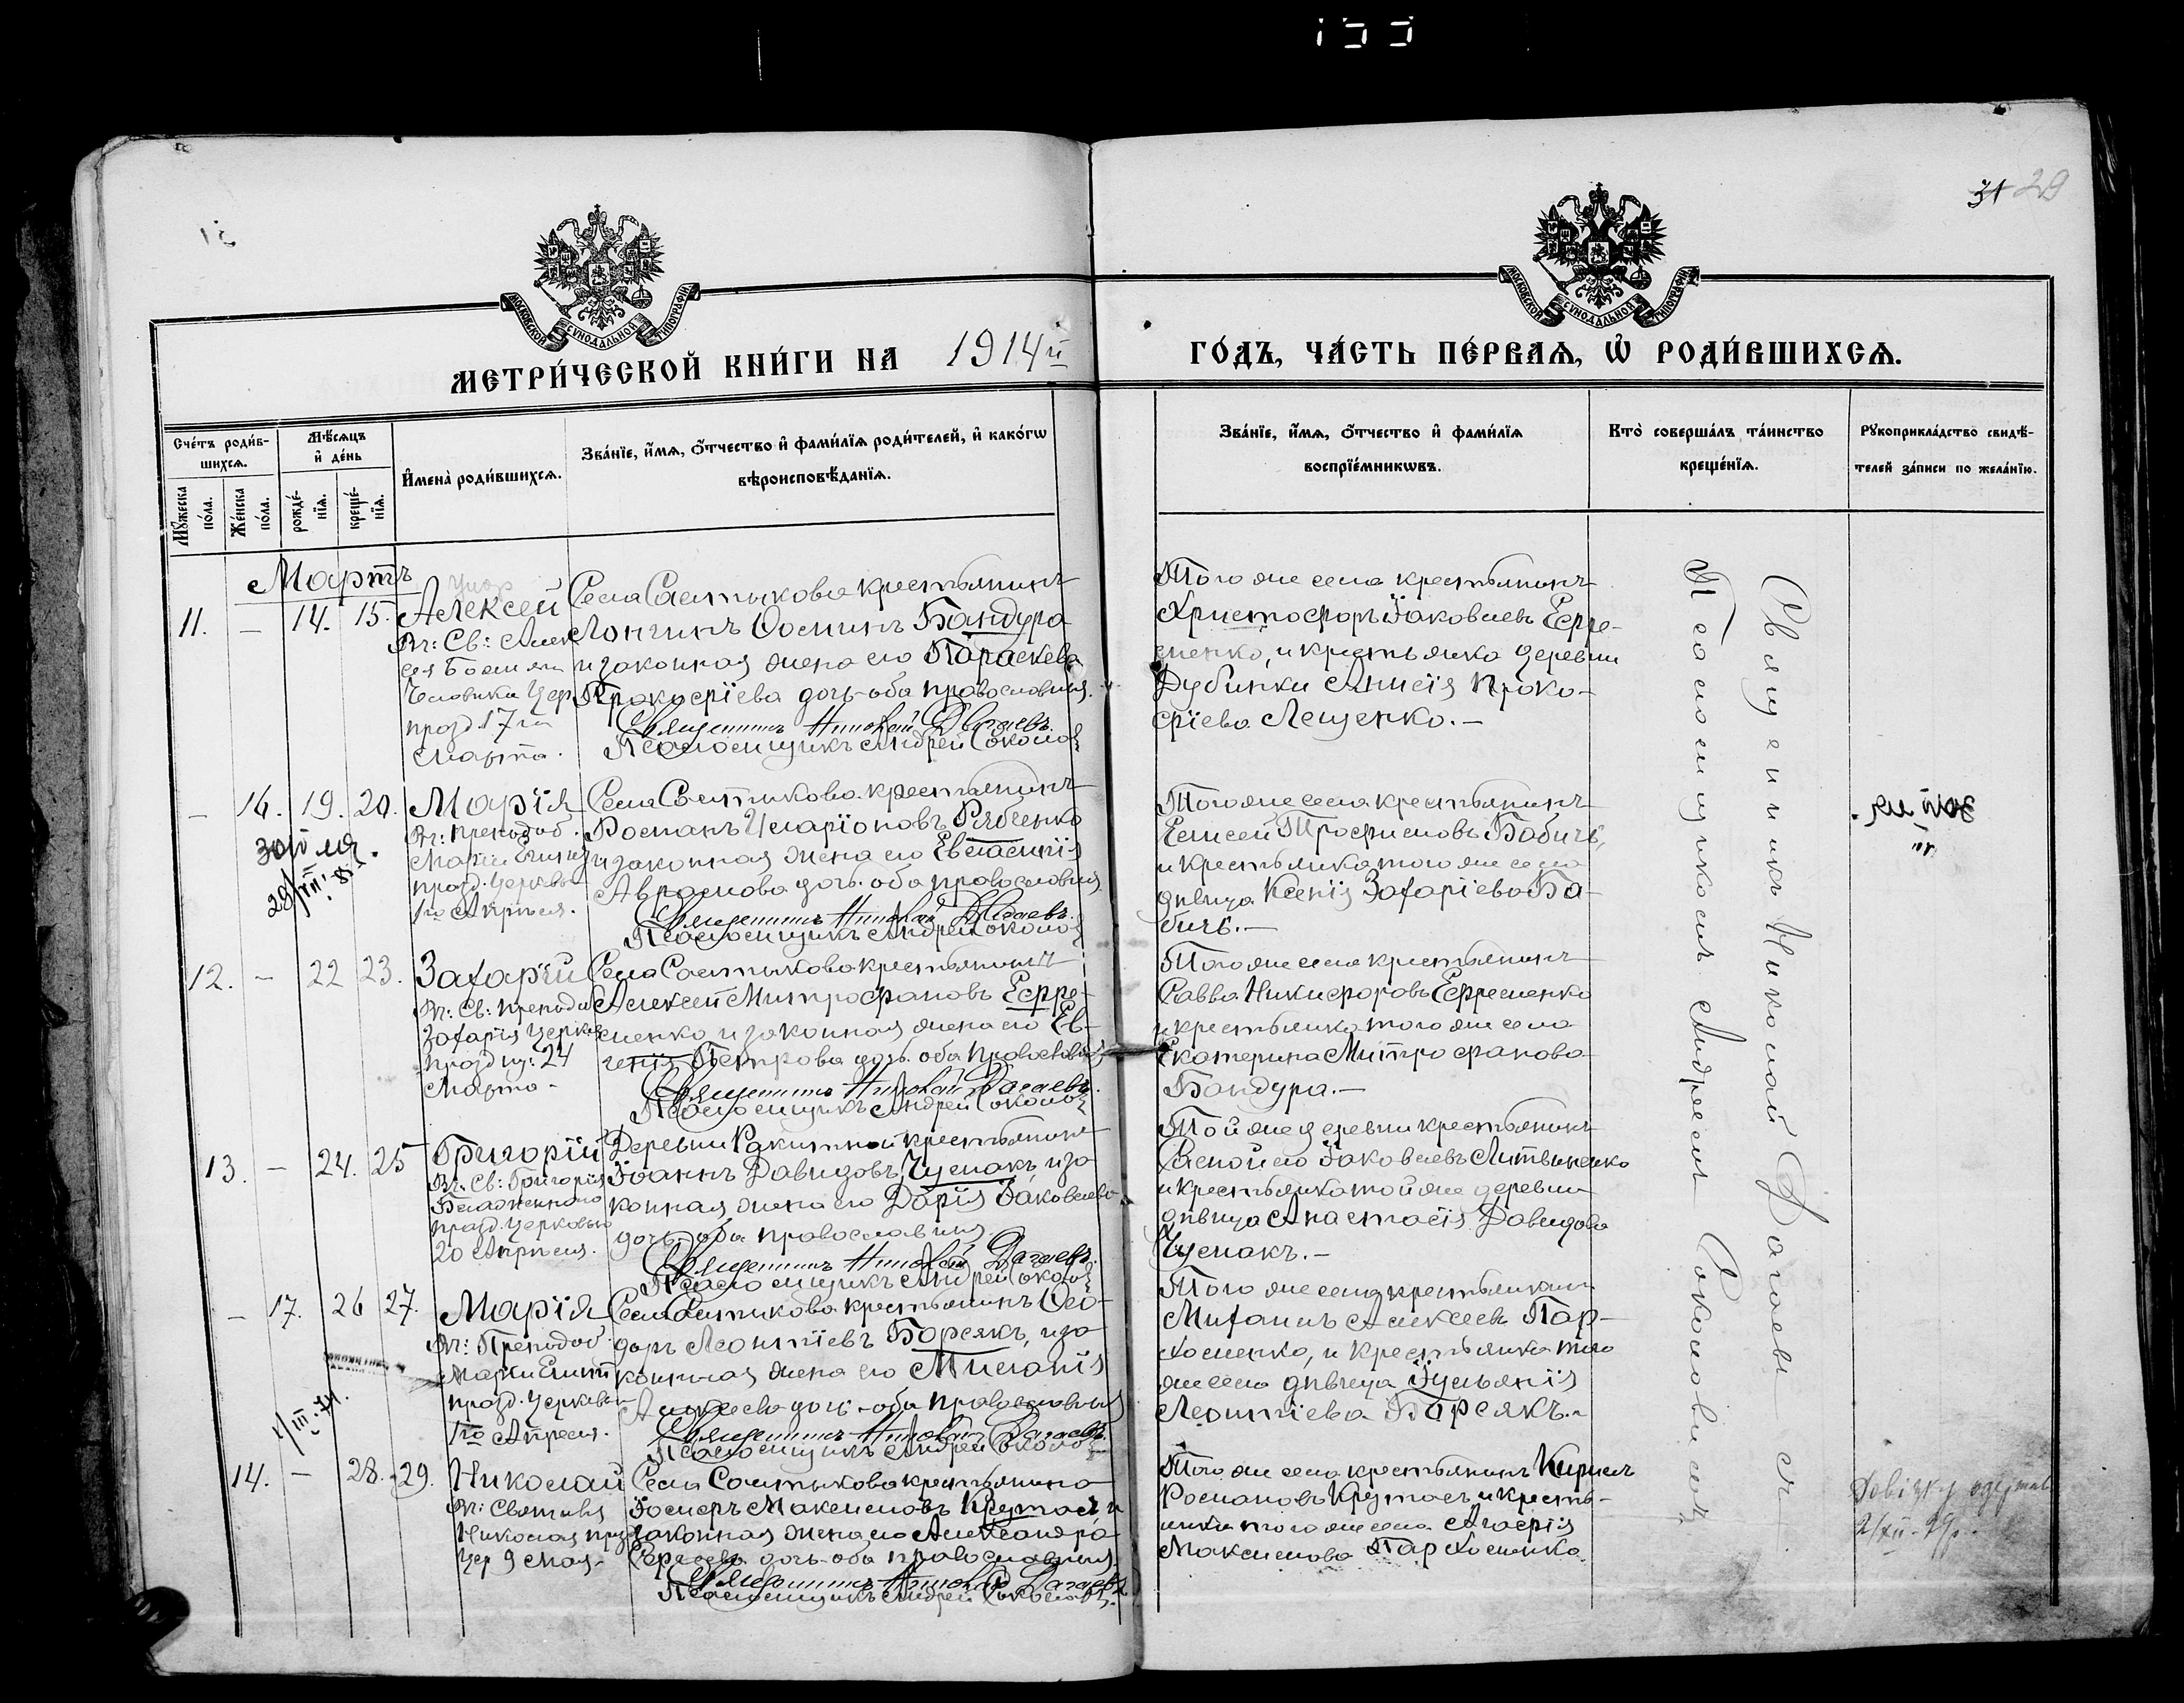 31 29
МОСКОВСКОЙ СѴНОДАЛЬНОЙ ТИПОГРАФІИ
МОСКОВСКОЙ СѴНОДАЛЬНОЙ ТИПОГРАФІИ
МЕТРИ́ЧЕСКОЙ КНИ́ГИ НА 1914й ГО́ДЪ, ЧА́СТЬ ПЕ́РВАЯ, Ѡ҆ РОДИ́ВШИХСЯ.
Сче́тъ роди́в-
шихся.
Мꙋ́жеска
по́ла.
Же́нска
по́ла.
Мѣ́сяцъ
и҆ де́нь
рожде́-
нїя.
креще́-
нїя.
И҆мена̀ роди́вшихся.
Зва́нїе, и҆́мя, ѻ҆́тчество и҆ фами́лїя роди́телей, и҆ како́гѡ
вѣроисповѣ́данїя.
Зва́нїе, и҆́мя, ѻ҆́тчество и҆ фами́лїя
воспрїе́мникѡвъ.
Кто̀ соверша́лъ та́инство
креще́нїя.
Рꙋкоприкла́дство свидѣ́-
телей за́писи по жела́нїю.
Мартъ
11. — 14. 15. Алексей
Вч: Св: Алек
сея Божія
Человѣка Цер
празд 17го
Марта.
Села Салтыкова крестьянинъ
Лонгинъ Ѳоминъ Бандура
и законная жена его Параскева
Прокофіева дочь оба православныя.
Священникъ Николай Дагаевъ.
Псаломщикъ Андрей Соколов
Того же села крестьянинъ
Христофоръ Іаковлевъ Ефре-
менко, и крестьянка деревни
Дубинки Анисія Проко-
фіева Лещенко. —
— 16. 19. 20. Марія
Вч: преподоб.
Маріи Египет
празд. Церковью
1го Апрѣля.
Села Салтыкова крестьянинъ
Романъ Иларіоновъ Рябченко
и законная жена его Евстасиія
Аврамова дочь оба православныя
Священникъ Николай Дагаевъ.
Псаломщикъ Андрей Соколов
Того же села крестьянинъ
Елисей Трофимовъ Бабичъ,
и крестьянка того же села
дѣвица Ксенія Захаріева Ба-
бичъ. —
12. — 22 23. Захарій
Вч: Св: преподоб
Захарія Церков
празднуе: 24
Марта —
Села Салтыкова крестьянинъ
Алексей Митрофановъ Ефре-
менко и законная жена его Ев-
генія Петрова дочь оба православ
Священникъ Николай Дагаевъ.
Псаломщикъ Андрей Соколов
Того же села крестьянинъ
Савва Никифоровъ Ефременко
и крестьянка того же села
Екатерина Митрофанова
Бандура. —
13. — 24. 25 Григорій
Вч. Св: Григорія
Блаженнаго
празд. Церковью
20 Апрѣля.
Деревни Ракитной крестьянинъ
Іоаннъ Давидовъ Чумакъ и за
конная жена его Дарія Іаковлева
дочь оба православныя.
Священникъ Николай Дагаевъ.
Псаломщикъ Андрей Соколов
Той же деревни крестьянинъ
Самойло Іаковлевъ Литвиненко
и крестьянка той же деревни
дѣвица Анастасія Давидова
Чумакъ. —
— 17. 26 27. Марія
Вч: Преподоб
Маріи Египт
празд. Церковью
1го Апреля.
Села Салтыкова крестьянинъ Ѳео-
доръ Леонтіевъ Борсякъ, и за
конная жена его Миланія
Алексеева дочь — оба православныя
Священникъ Николай Дагаевъ.
Псаломщикъ Андрей Соколов
Того же села крестьянинъ
Михаилъ Алексеевъ Пар-
хоменко, и крестьянка того
же села дѣвица Іуліанія
Леонтіева Борсякъ. —
14. — 28. 29. Николай
Вч: Святителя
Николая праз
Цер 9 мая.
Села Салтыкова крестьянинъ
Іосифъ Максимовъ Крутась и
законная жена его Александра
Сергеева дочь оба православныя.
Священникъ Николай Дагаевъ.
Псаломщикъ Андрей Соколовъ.
Того же села крестьянинъ Кирилъ
Романовъ Крутась и кресть-
янка того же села Агафія
Максимова Пархоменко.
Священникъ Николай Дагаевъ съ
Псаломщикомъ Андреемъ Соколовымъ
Довідку одержав
2/XII-29р.